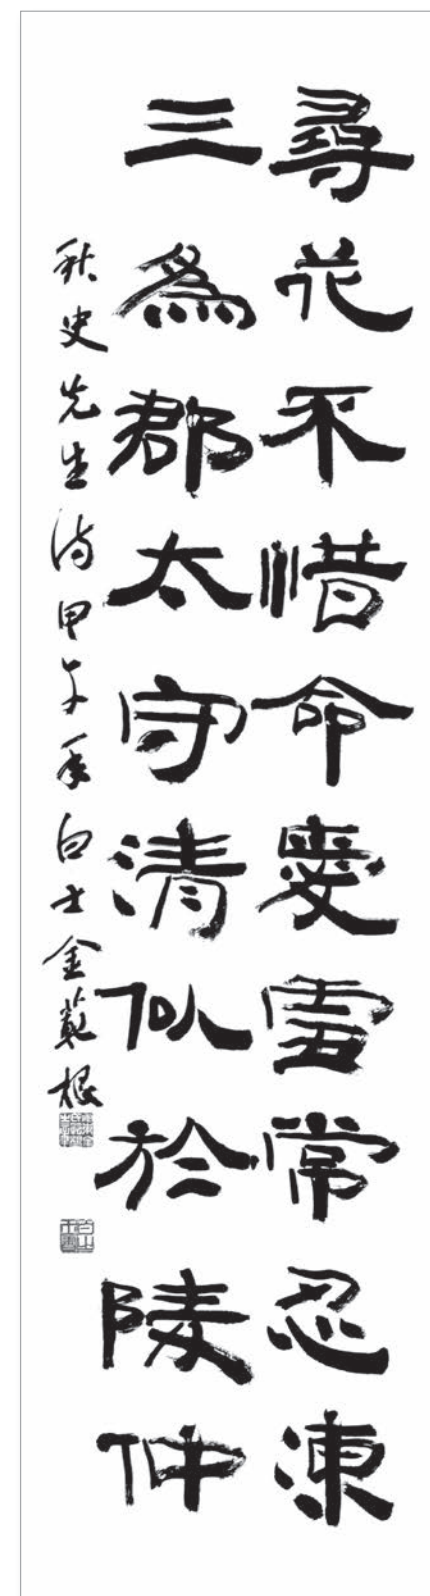 尋花不惜命愛雪常忍凍
三為郡太守清似於陵仲
秋史先生詩甲午年白士金範根